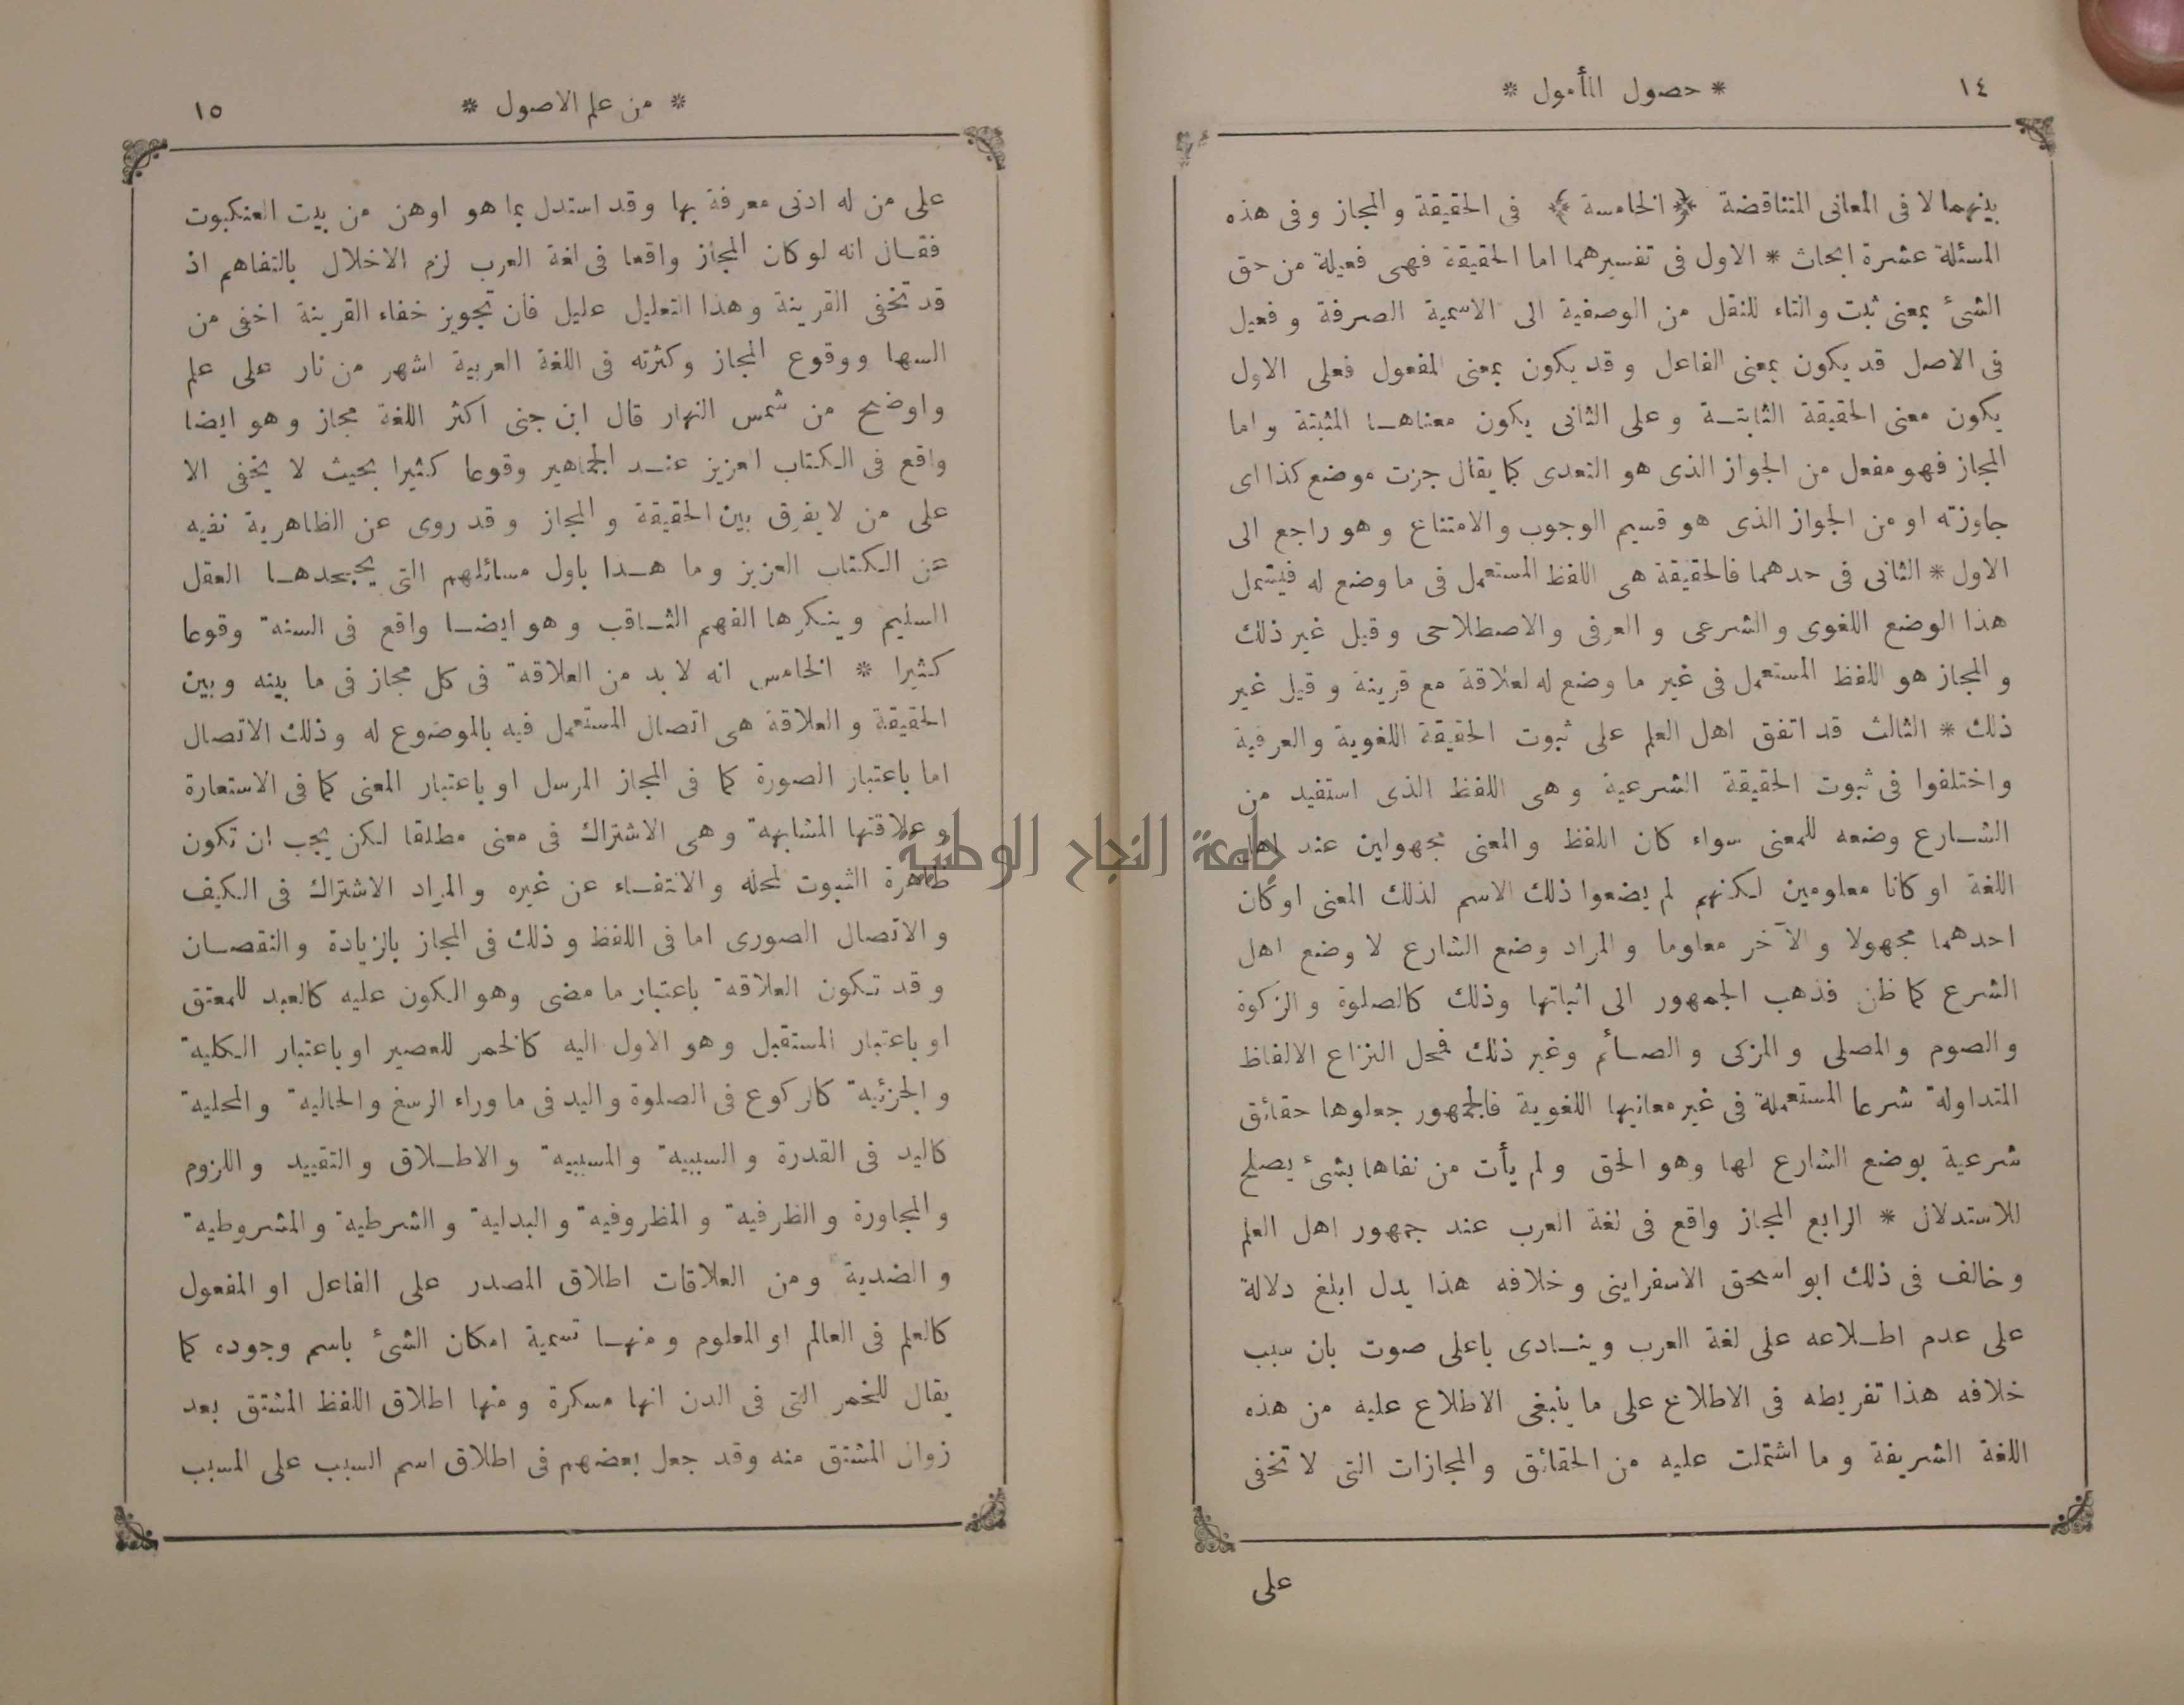 ١٤
* حصول المأمول *
بينهما لا فى المعانى المتناقضة ﴿ الخامسة ﴾ فى الحقيقة والمجاز وفى هذه
المسئلة عشرة ابحاث * الاول فى تفسيرهما اما الحقيقة فهى فعيلة من حق
الشئ بمعنى ثبت والتاء للنقل من الوصفية الى الاسمية الصرفة وفعيل
فى الاصل قد يكون بمعنى الفاعل وقد يكون بمعنى المفعول فعلى الاول
يكون معنى الحقيقة الثابتة وعلى الثانى يكون معناها المثبتة واما
المجاز فهو مفعل من الجواز الذى هو التعدى كما يقال جزت موضع كذا اى
جاوزته او من الجواز الذى هو قسيم الوجوب والامتناع وهو راجع الى
الاول * الثانى فى حدهما فالحقيقة هى اللفظ المستعمل فى ما وضع له فيشمل
هذا الوضع اللغوى والشرعى والعرفى والاصطلاحى وقيل غير ذلك
والمجاز هو اللفظ المستعمل فى غير ما وضع له لعلاقة مع قرينة وقيل غير
ذلك * الثالث قد اتفق اهل العلم على ثبوت الحقيقة اللغوية والعرفية
واختلفوا فى ثبوت الحقيقة الشرعية وهى اللفظ الذى استفيد من
الشارع وضعه للمعنى سواء كان اللفظ والمعنى مجهولين عند اهل
اللغة او كانا معلومين لكنهم لم يضعوا ذلك الاسم لذلك المعنى او كان
احدهما مجهولا والآخر معلوما والمراد وضع الشارع لا وضع اهل
الشرع كما ظن فذهب الجمهور الى اثباتها وذلك كالصلوة والزكوة
والصوم والمصلى والمزكى والصائم وغير ذلك فمحل النزاع الالفاظ
المتداولة شرعا المستعملة فى غير معانيها اللغوية فالجمهور جعلوها حقائق
شرعية بوضع الشارع لها وهو الحق ولم يأت من نفاها بشئ يصلح
للاستدلال * الرابع المجاز واقع فى لغة العرب عند جمهور اهل العلم
وخالف فى ذلك ابو اسحق الاسفراينى وخلافه هذا يدل ابلغ دلالة
على عدم اطلاعه على لغة العرب وينادى باعلى صوت بان سبب
خلافه هذا تفريطه فى الاطلاع على ما ينبغى الاطلاع عليه من هذه
اللغة الشريفة وما اشتملت عليه من الحقائق والمجازات التى لا تخفى
على
* من علم الاصول *
١٥
على من له ادنى معرفة بها وقد استدل بما هو اوهن من بيت العنكبوت
فقال انه لو كان المجاز واقعا فى لغة العرب لزم الاخلال بالتفاهم اذ
قد تخفى القرينة وهذا التعليل عليل فان تجويز خفاء القرينة اخفى من
السها ووقوع المجاز وكثرته فى اللغة العربية اشهر من نار على علم
واوضح من شمس النهار قال ابن جنى اكثر اللغة مجاز وهو ايضا
واقع فى الكتاب العزيز عند الجماهير وقوعا كثيرا بحيث لا يخفى الا
على من لا يفرق بين الحقيقة والمجاز وقد روى عن الظاهرية نفيه
عن الكتاب العزيز وما هذا باول مسائلهم التى يجحدها العقل
السليم وينكرها الفهم الثاقب وهو ايضا واقع فى السنة وقوعا
كثيرا * الخامس انه لا بد من العلاقة فى كل مجاز فى ما بينه وبين
الحقيقة والعلاقة هى اتصال المستعمل فيه بالموضوع له وذلك الاتصال
اما باعتبار الصورة كما فى المجاز المرسل او باعتبار المعنى كما فى الاستعارة
وعلاقتها المشابهة وهى الاشتراك فى معنى مطلقا لكن يجب ان تكون
ظاهرة الثبوت لمحله والانتفاء عن غيره والمراد الاشتراك فى الكيف
والاتصال الصورى اما فى اللفظ وذلك فى المجاز بالزيادة والنقصان
وقد تكون العلاقة باعتبار ما مضى وهو الكون عليه كالعبد للمعتق
او باعتبار المستقبل وهو الاول اليه كالخمر للعصير او باعتبار الكلية
والجزئية كالركوع فى الصلوة واليد فى ما وراء الرسغ والحالية والمحلية
كاليد فى القدرة والسببية والمسببية والاطلاق والتقييد واللزوم
والمجاورة والظرفية والمظروفية والبدلية والشرطية والمشروطية
والضدية ومن العلاقات اطلاق المصدر على الفاعل او المفعول
كالعلم فى العالم او المعلوم ومنها تسمية امكان الشئ باسم وجوده كما
يقال للخمر التى فى الدن انها مسكرة ومنها اطلاق اللفظ المشتق بعد
زوال المشتق منه وقد جعل بعضهم فى اطلاق اسم السبب على المسبب
جامعة النجاح الوطنية